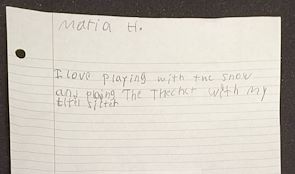 Maria H.
I love playing with the snow
and playing The Thechet with my
littl sister